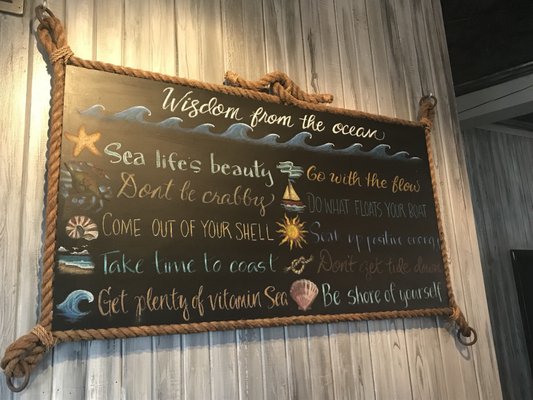 Wisdom from the ocean
Sea life's beauty
Dont be crabby
COME OUT OF YOUR SHELL
Take time to coast
Get plenty of vitamin Sea
Go with the flow
DO WHAT FLOATS YOUR BOAT
positive energy
Don't get tide down
Be shore of yourself